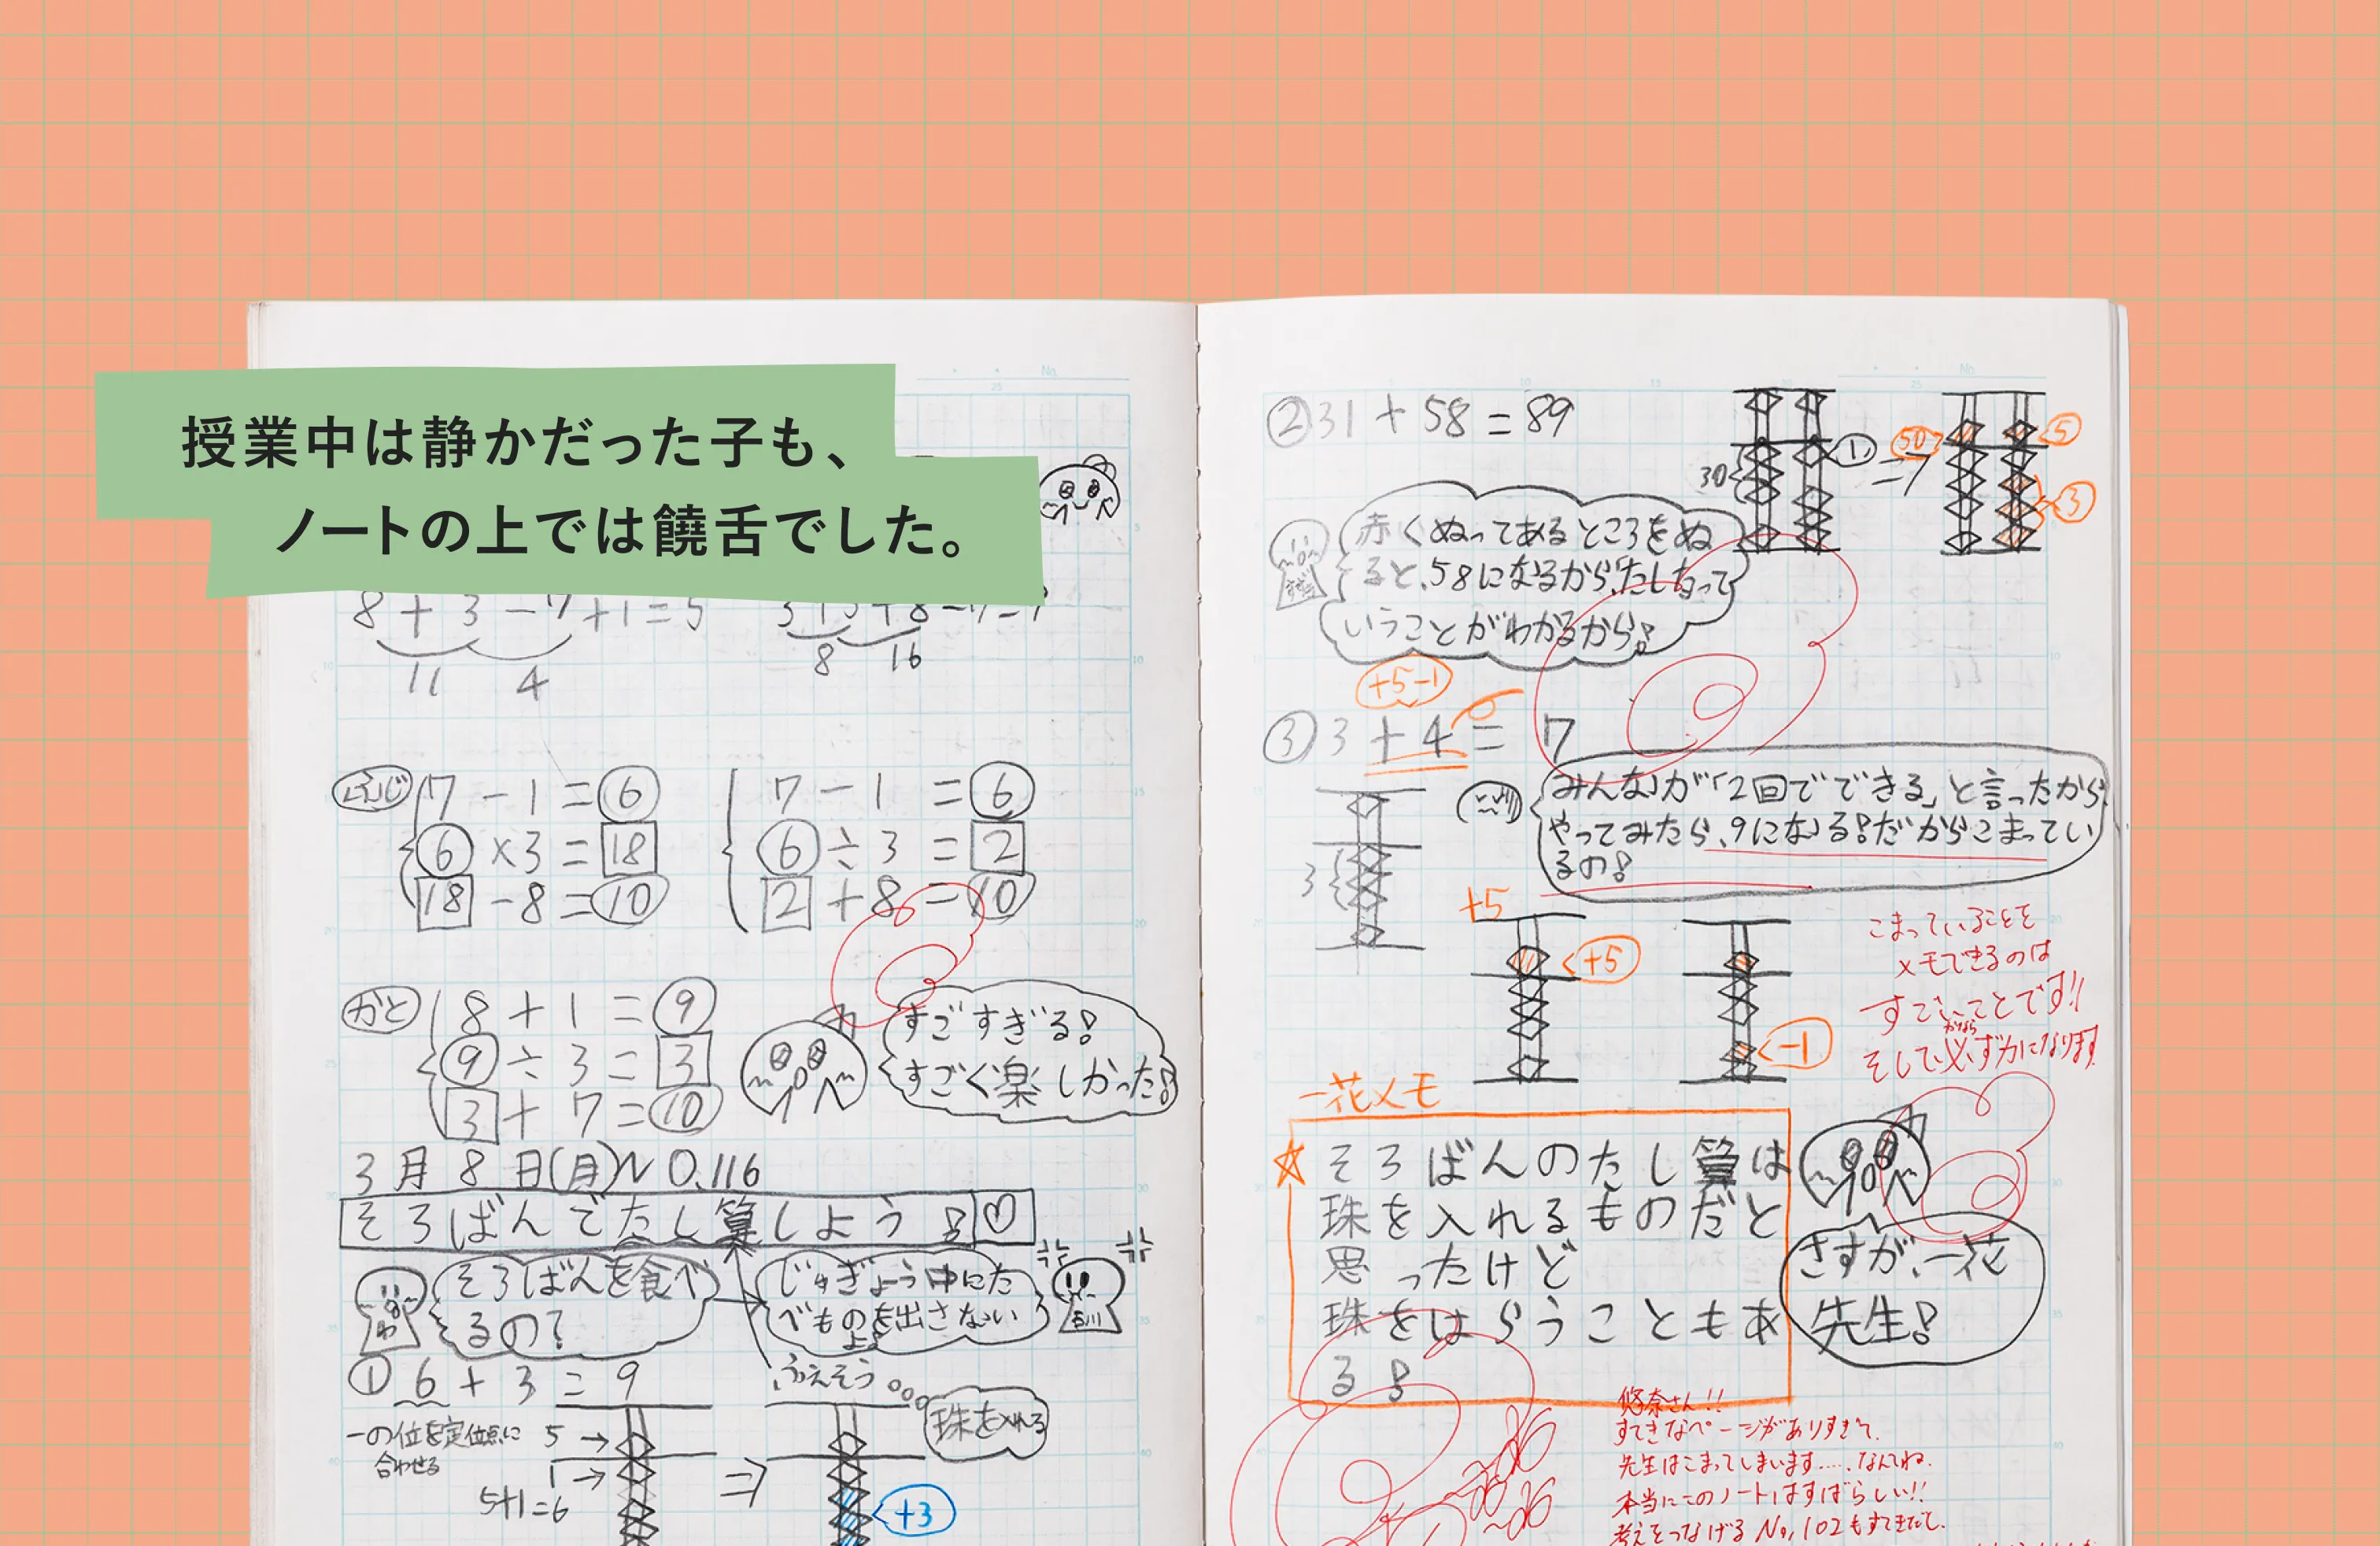 授業中は静かだった子も、
ノートの上では饒舌でした。
No.
8 + 3 - 7 + 1 = 5
11 4
8 16
ふじ
7 - 1 = 6
6 × 3 = 18
18 - 8 = 10
7 - 1 = 6
6 ÷ 3 = 2
2 + 8 = 10
かと
8 + 1 = 9
9 ÷ 3 = 3
3 + 7 = 10
すごすぎる!
すごく楽しかった!
3月8日(月)No.116
そろばんでたし算しよう!♡
そろばんを食べ
るの?
じゅぎょう中にた
べものを出さない
よ
① 6 + 3 = 9
ふえそう
珠を入れる
一の位を定位点に
合わせる
5→
1→
5+1=6
⇒
+3
No.
② 31 + 58 = 89
30
1
⇒
50
5
3
赤くぬってあるところをぬ
ると、58になるから、たしなって
いうことがわかるから!
+5-1
③ 3 + 4 = 7
みんなが「2回でできる」と言ったから
やってみたら、9になる!だからこまってい
るの!
3
+5
+5
-1
こまっていることを
メモできるのは
すごいことです!!
そして必ず力になります
かなら
一花メモ
☆そろばんのたし算は
珠を入れるものだと
思ったけど
珠をはらうこともあ
る!
さすが、一花
先生!
悠奈さん!!
すてきなページがありすぎて、
先生はこまってしまいます.....なんてね。
本当にこのノートはすばらしい!!
考えをつなげる No,102もすてきだし、